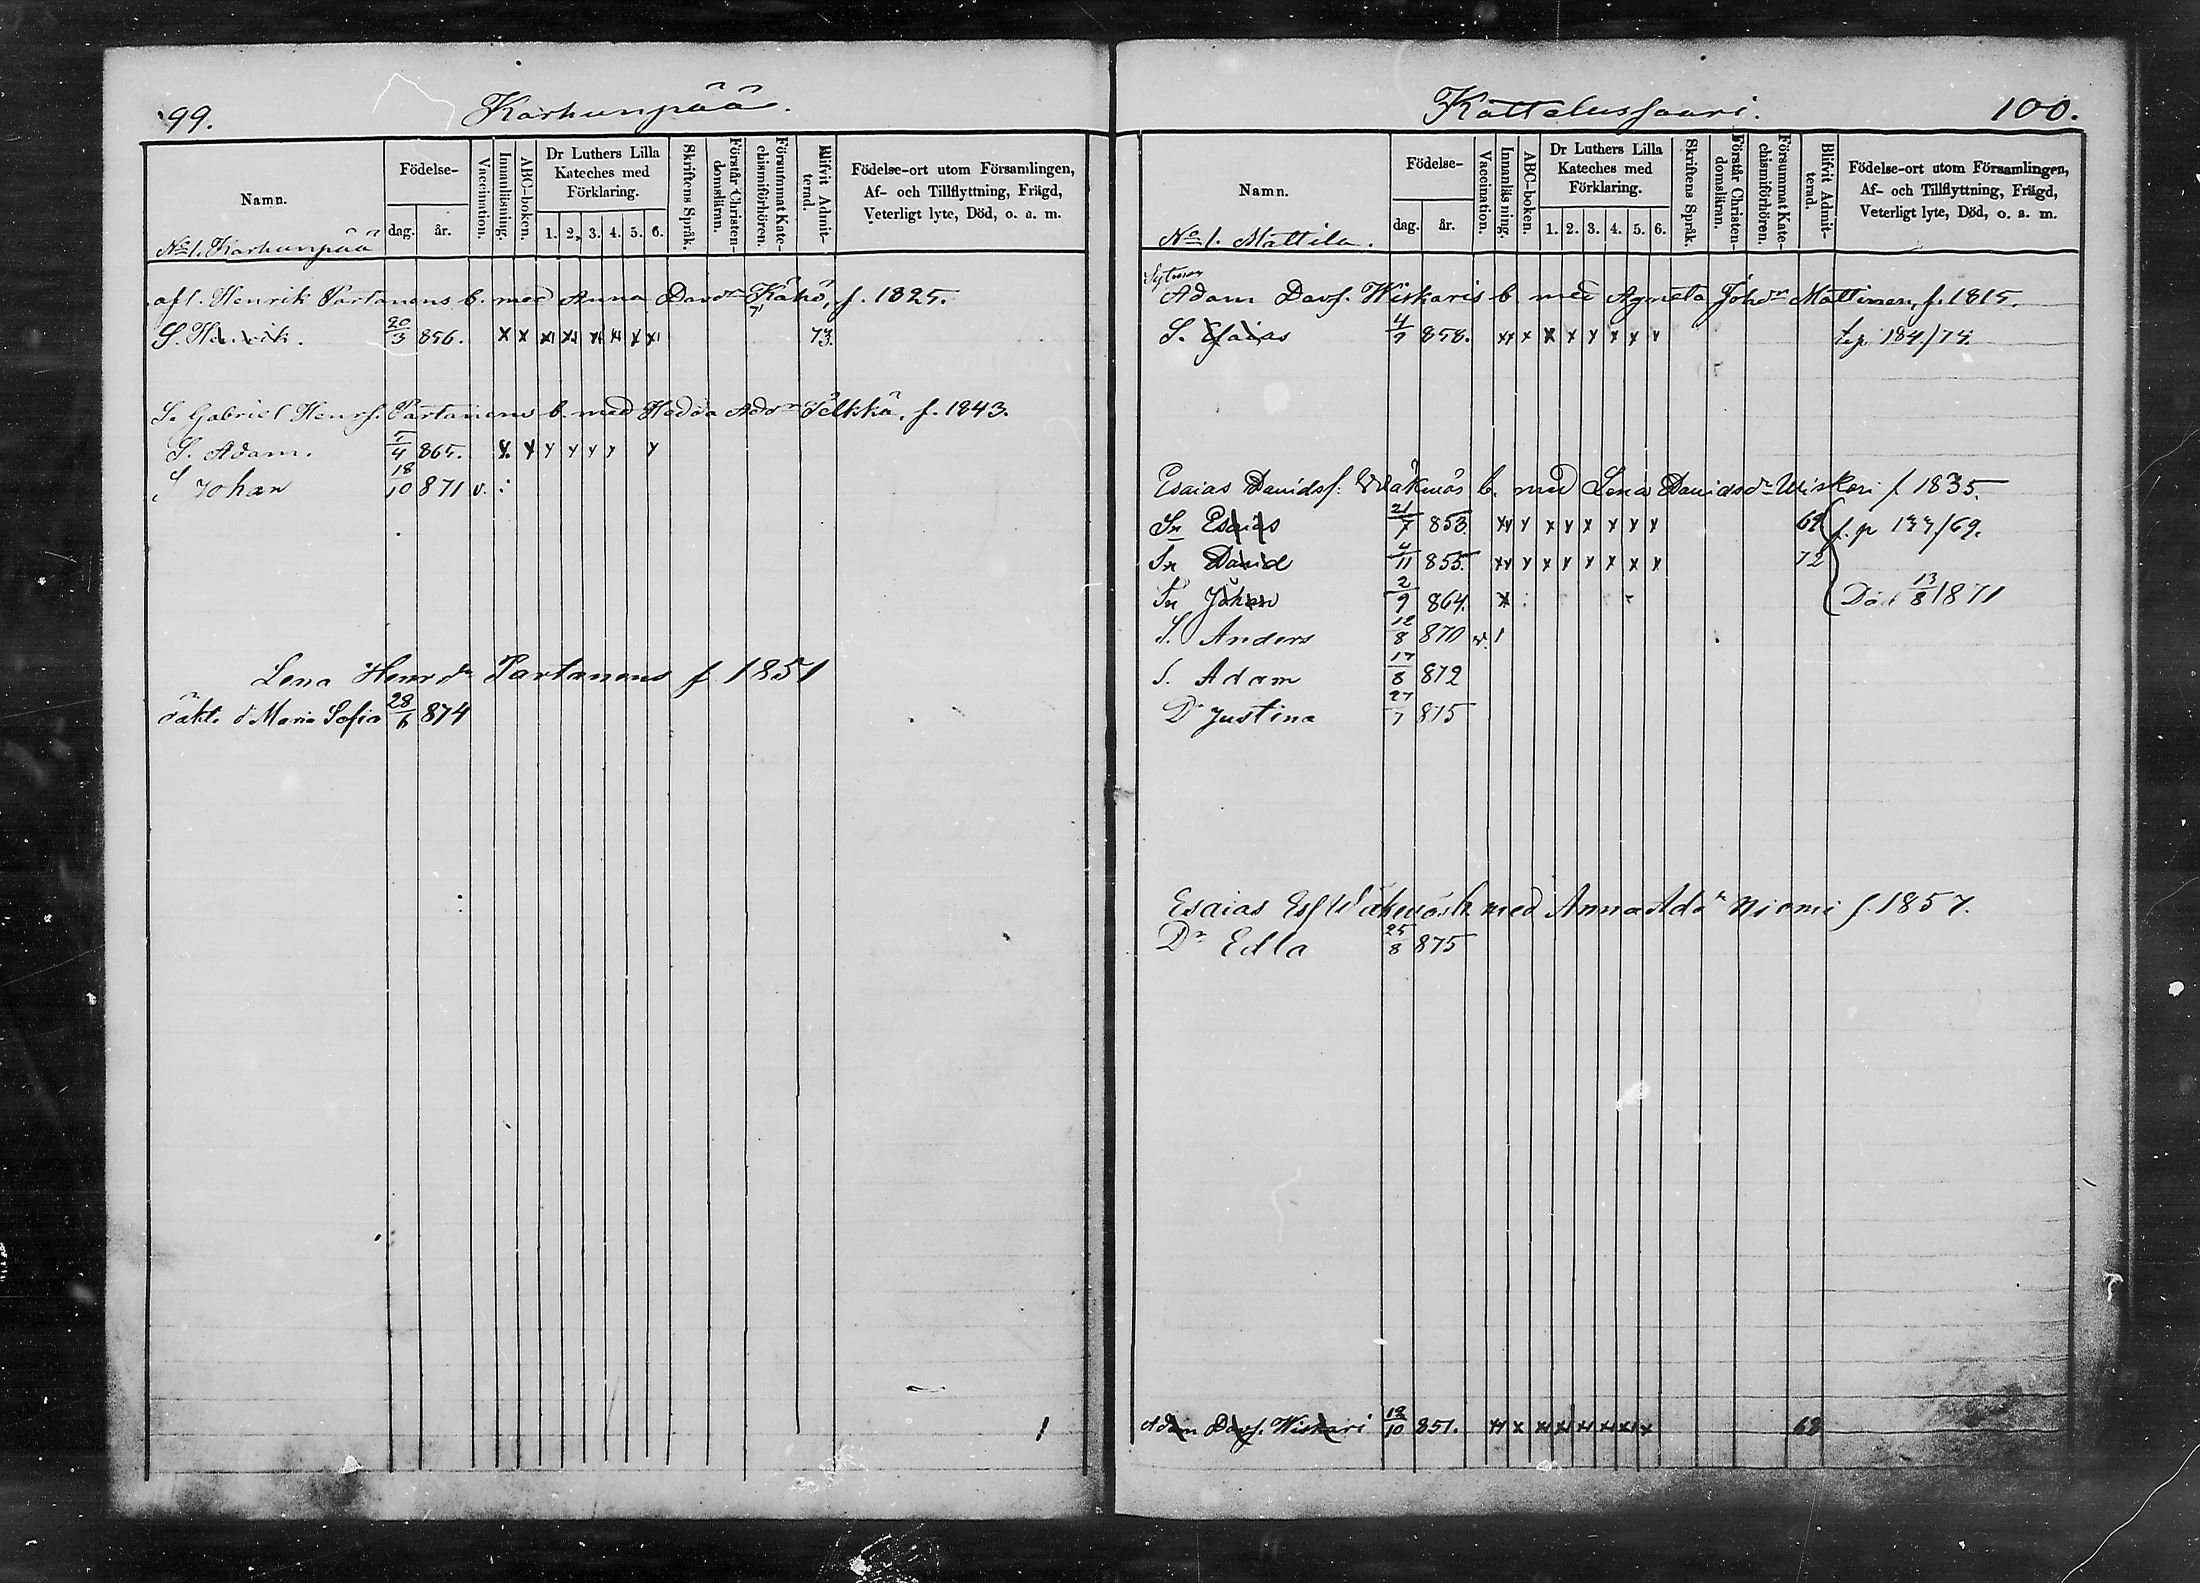 99. Karhunpää.
Namn.
Födelse-
dag. år.
Vaccination.
Innanläsning.
ABC-boken.
Dr Luthers Lilla Kateches med Förklaring.
1. 2. 3. 4. 5. 6.
Skriftens Språk.
Förstår Christen-domsläran.
Försummat Kate-chismiförhören.
Blifvit Admit-terad.
Födelse-ort utom Församlingen,
Af- och Tillflyttning, Frägd,
Veterligt lyte, Död, o. a. m.
No 1. Karhunpää
afl. Henrik Partanens b. med Anna Davdr Kähö, f. 1825.
S. Henrik. 20/3 856. x x x x x x x x 73.
S. Gabriel Henrs. Partanens b. med Hedda Addr Pelkkä, f. 1843.
S. Adam. 5/4 865. x x x x x x x
S Johan 18/10 871 v.
Lena Henrdr Partanens f 1851
oäkt. d Maria Sofia 28/6 874
1
Kattelussaari. 100.
Namn.
Födelse-
dag. år.
Vaccination.
Innanläsning.
ABC-boken.
Dr Luthers Lilla Kateches med Förklaring.
1. 2. 3. 4. 5. 6.
Skriftens Språk.
Förstår Christen-domsläran.
Försummat Kate-chismiförhören.
Blifvit Admit-terad.
Födelse-ort utom Församlingen,
Af- och Tillflyttning, Frägd,
Veterligt lyte, Död, o. a. m.
No 1. Mattila.
Adam Davs. Wiskaris b. med Agneta Johdr Mattinen, f. 1815.
S. Esaias 858. x x x x x x x x 184/74
Esaias Davids. Wäkevös b. med Lena Davidsdr Wiskari f 1835.
Sn Esaias 21/7 853 x x x x x x x x 69 f. p 177/69.
Sn David 4/11 855. x x x x x x x x 72
Sn Johan 2/9 864. x Död 13/8 1871
S. Anders 12/8 870 v. 1
S. Adam 17/8 872
Dr Justina 27/7 875
Esaias Es. Wäkevös b. med Anna Addr Niemi f. 1857.
Dr Edla 25/8 875
Adam Davs. Wiskari 12/10 851. x x x x x x x x 68